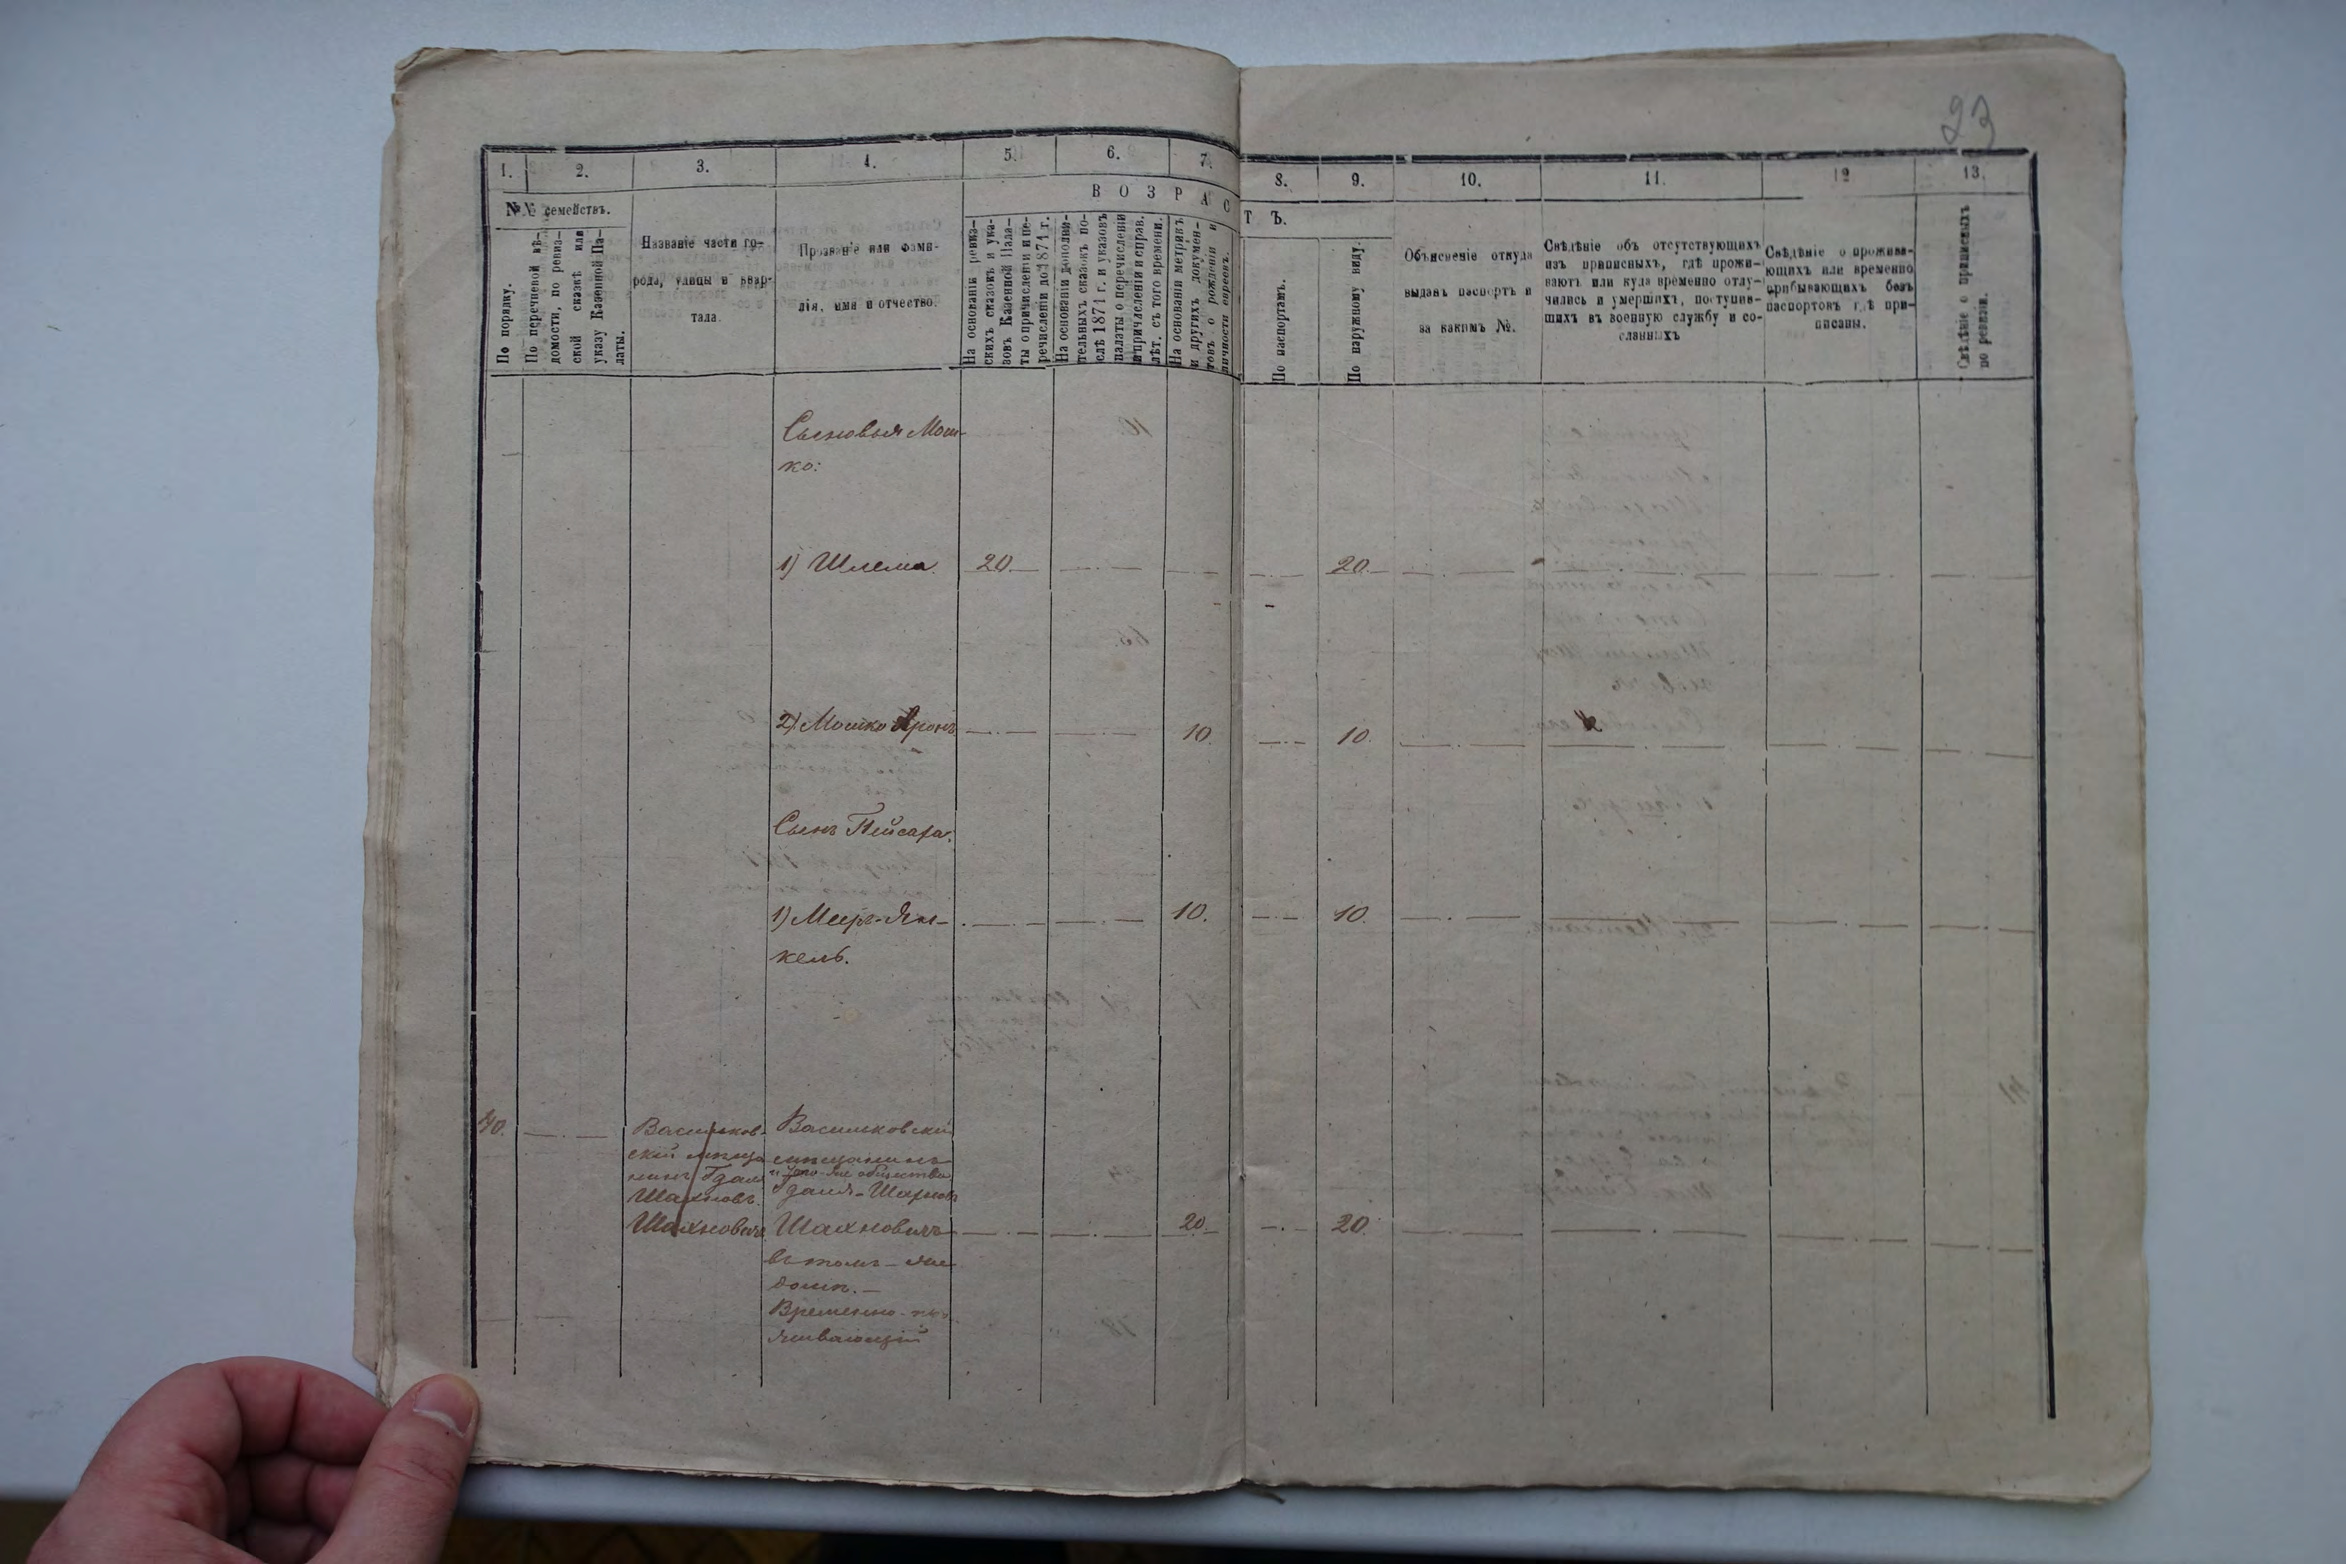 23
1.
2.
3.
4.
5.
6.
7.
8.
9.
10.
11.
12
13.
№№ семействъ.
ВОЗРАС
ТЪ.
По порядку.
По перечневой вѣ-
домости, по ревиз-
ской сказкѣ или
указу Казенной Па-
латы.
Названіе части го-
рода, улицы и квар-
тала.
Прозваніе или фами-
лія, имя и отчество.
На основаніи ревиз-
скихъ сказокъ и ука-
зовъ Казенной Пала-
ты о причисленіи и пе-
речисленіи до 1871 г.
На основаніи дополни-
тельныхъ сказокъ по-
слѣ 1871 г. и указовъ
палаты о перечисленіи
и причисленіи и справ.
лѣт. съ того времени.
На основаніи метрикъ
и другихъ докумен-
товъ о рожденіи и
личности евреевъ.
По паспортамъ.
По наружному виду.
Объясненіе откуда
выданъ паспортъ и
за какимъ №.
Свѣдѣніе объ отсутствующихъ
изъ приписныхъ, гдѣ прожи-
ваютъ или куда временно отлу-
чились и умершихъ, поступив-
шихъ въ военную службу и со-
сланныхъ
Свѣдѣніе о прожива-
ющихъ или временно
прибывающихъ безъ
паспортовъ гдѣ при-
писаны.
Свѣдѣніе о приписныхъ
по ревизіи.
Сыновья Мош-
ко:
1) Шлема. 20. 20.
2) Мошко Аронъ 10. 10.
Сынъ Пейсаха.
1) Меиръ-Ян- 10. 10.
кель.
40. Васильков- Васильковскій
скій мѣща мѣщанинъ
нинъ Гдал того-же общества
Шахновъ. Гдаля-Шахновъ
Шахновичъ Шахновичъ 20. 20.
въ томъ-же
домѣ.
Временно-про
живающій